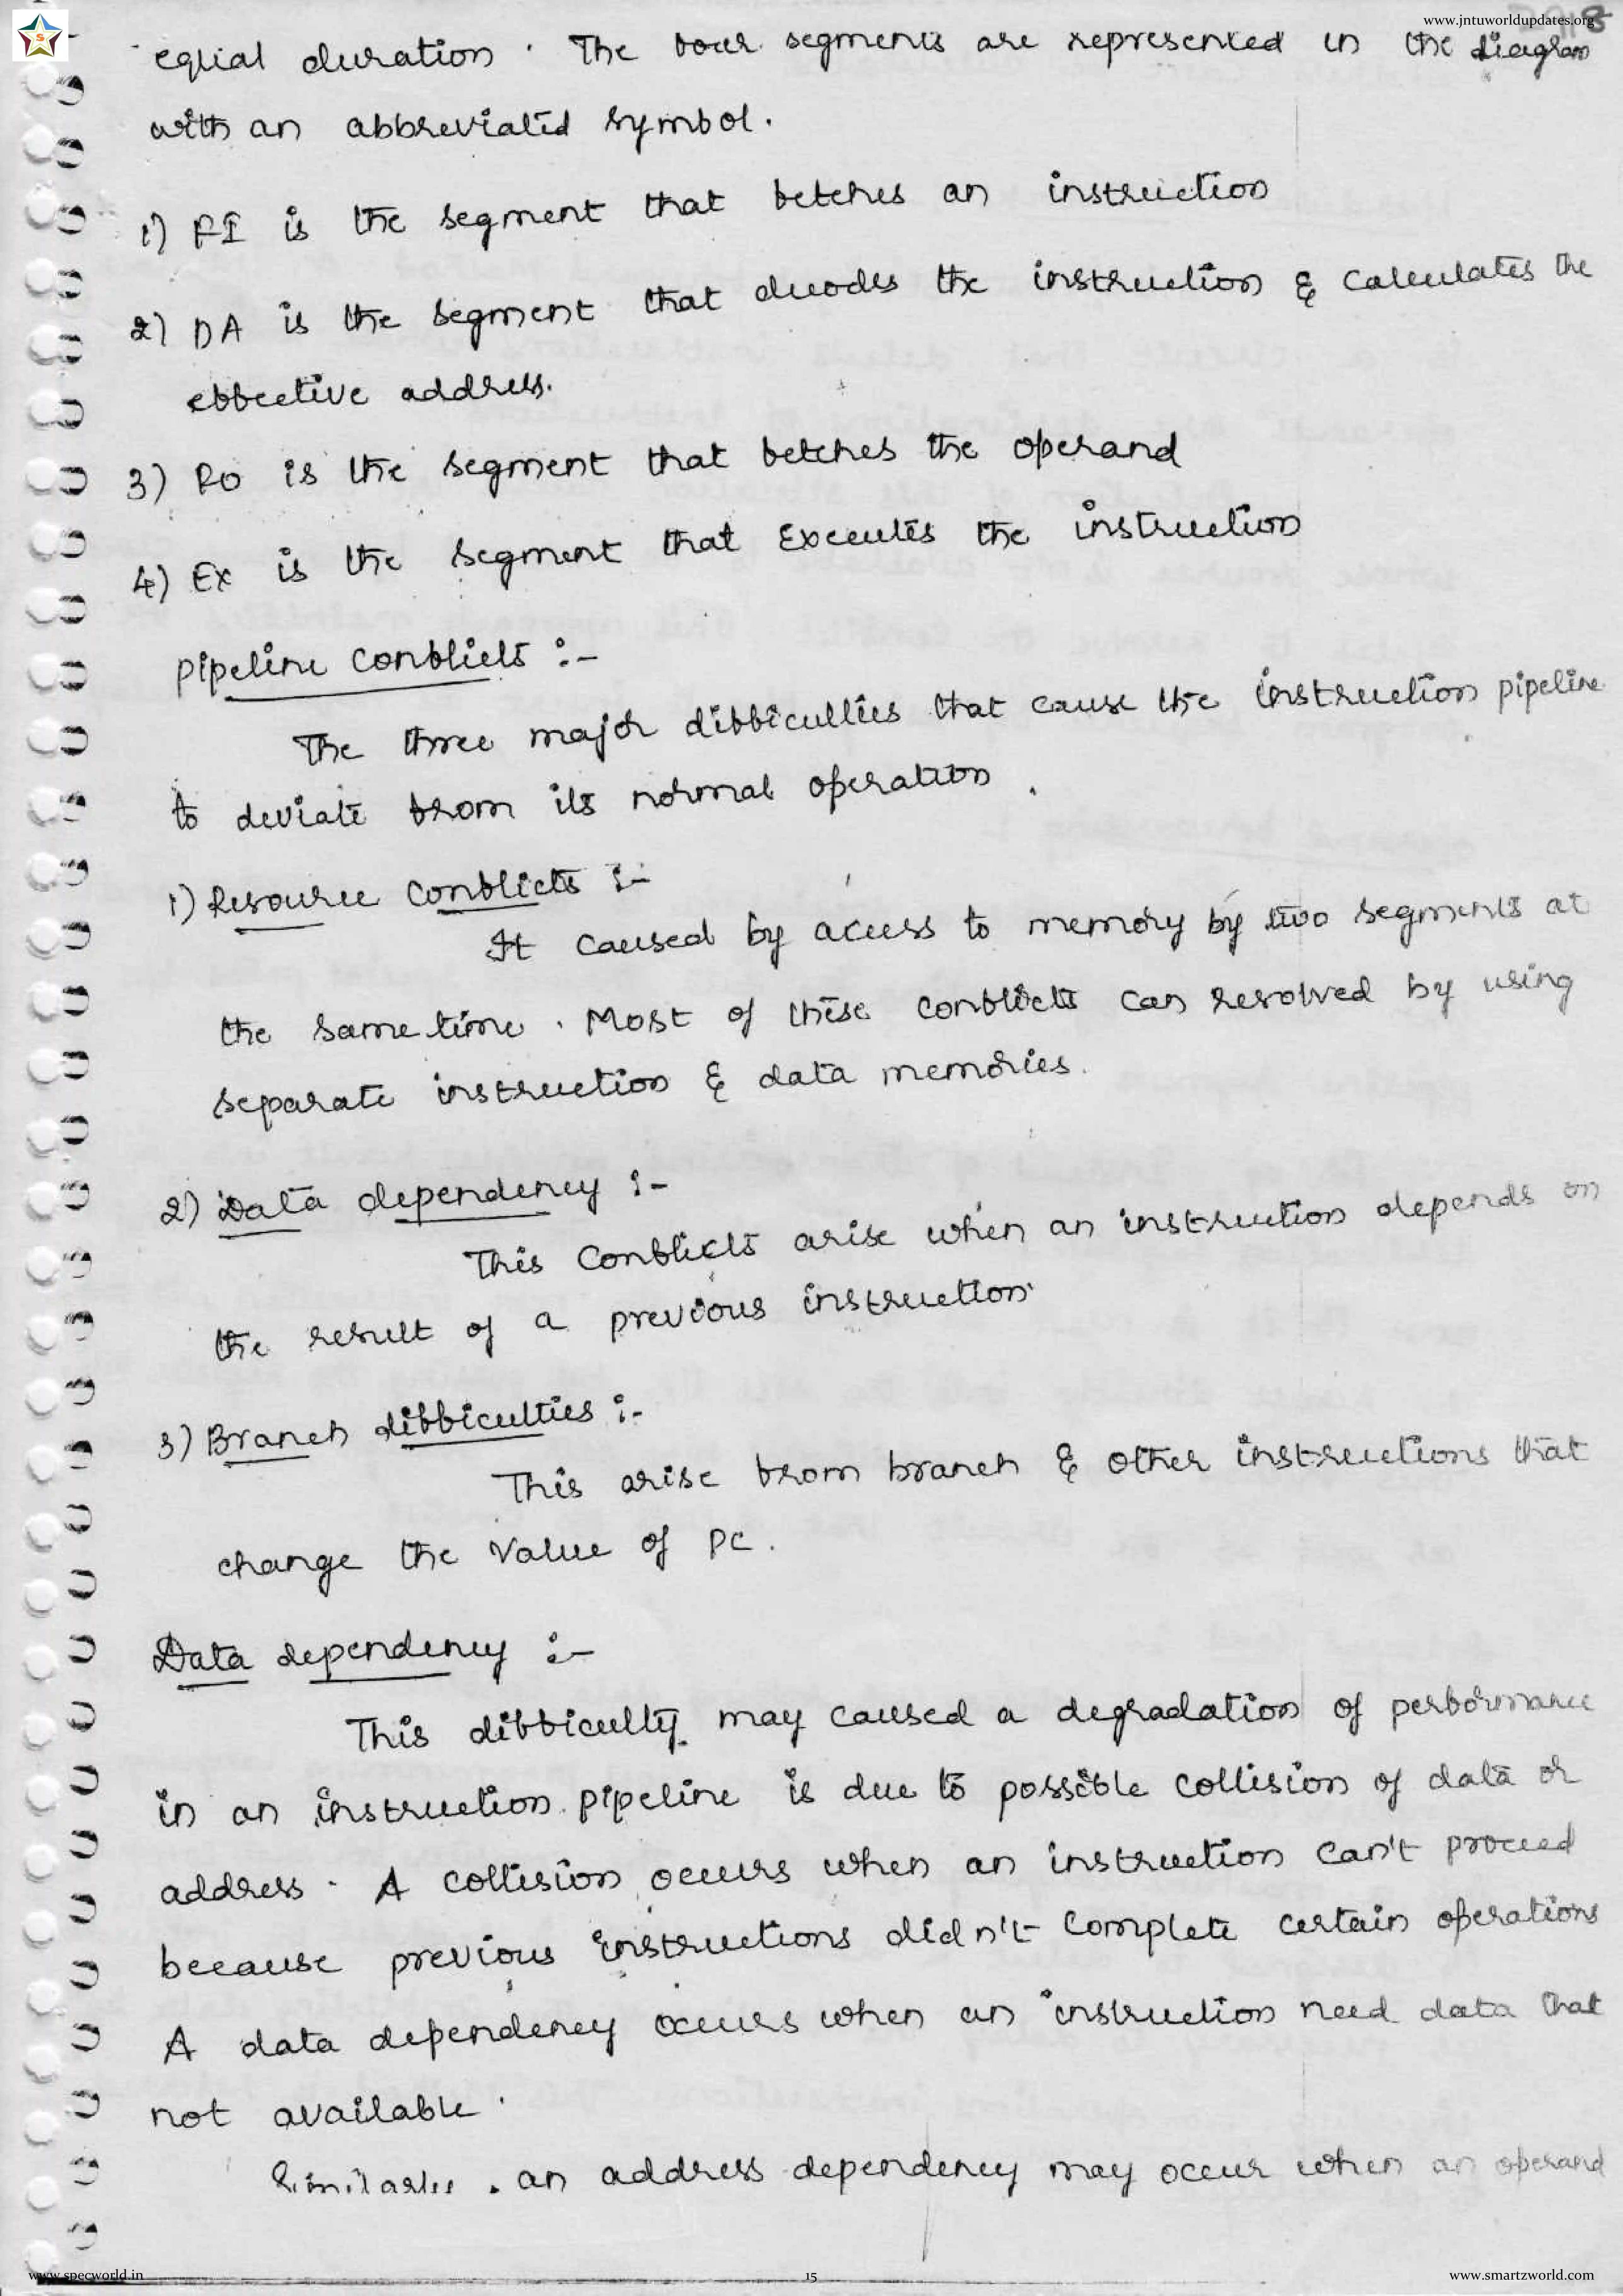 www.jntuworldupdates.org
S
equal duration . The four segments are represented in the diagram
with an abbreviated symbol.
1) FI is the segment that fetches an instruction
2) DA is the segment that decodes the instruction & calculates the
effective address.
3) FO is the segment that fetches the operand
4) EX is the segment that Executes the instruction
Pipeline conflicts :-
The three major difficulties that cause the instruction pipeline
to deviate from its normal operation .
1) Resource conflicts :-
It caused by access to memory by two segments at
the same time . Most of these conflicts can resolved by using
separate instruction & data memories.
2) Data dependency :-
This Conflicts arise when an instruction depends on
the result of a previous instruction.
3) Branch difficulties :-
This arise from branch & other instructions that
change the value of PC .
Data dependency :-
This difficulty may caused a degradation of performance
in an instruction pipeline is due to possible collision of data or
address . A collision occurs when an instruction can't proceed
because previous instructions didn't complete certain operations
A data dependency occurs when an instruction need data that
not available .
Similarly , an address dependency may occur when an operand
www.specworld.in
15
www.smartzworld.com